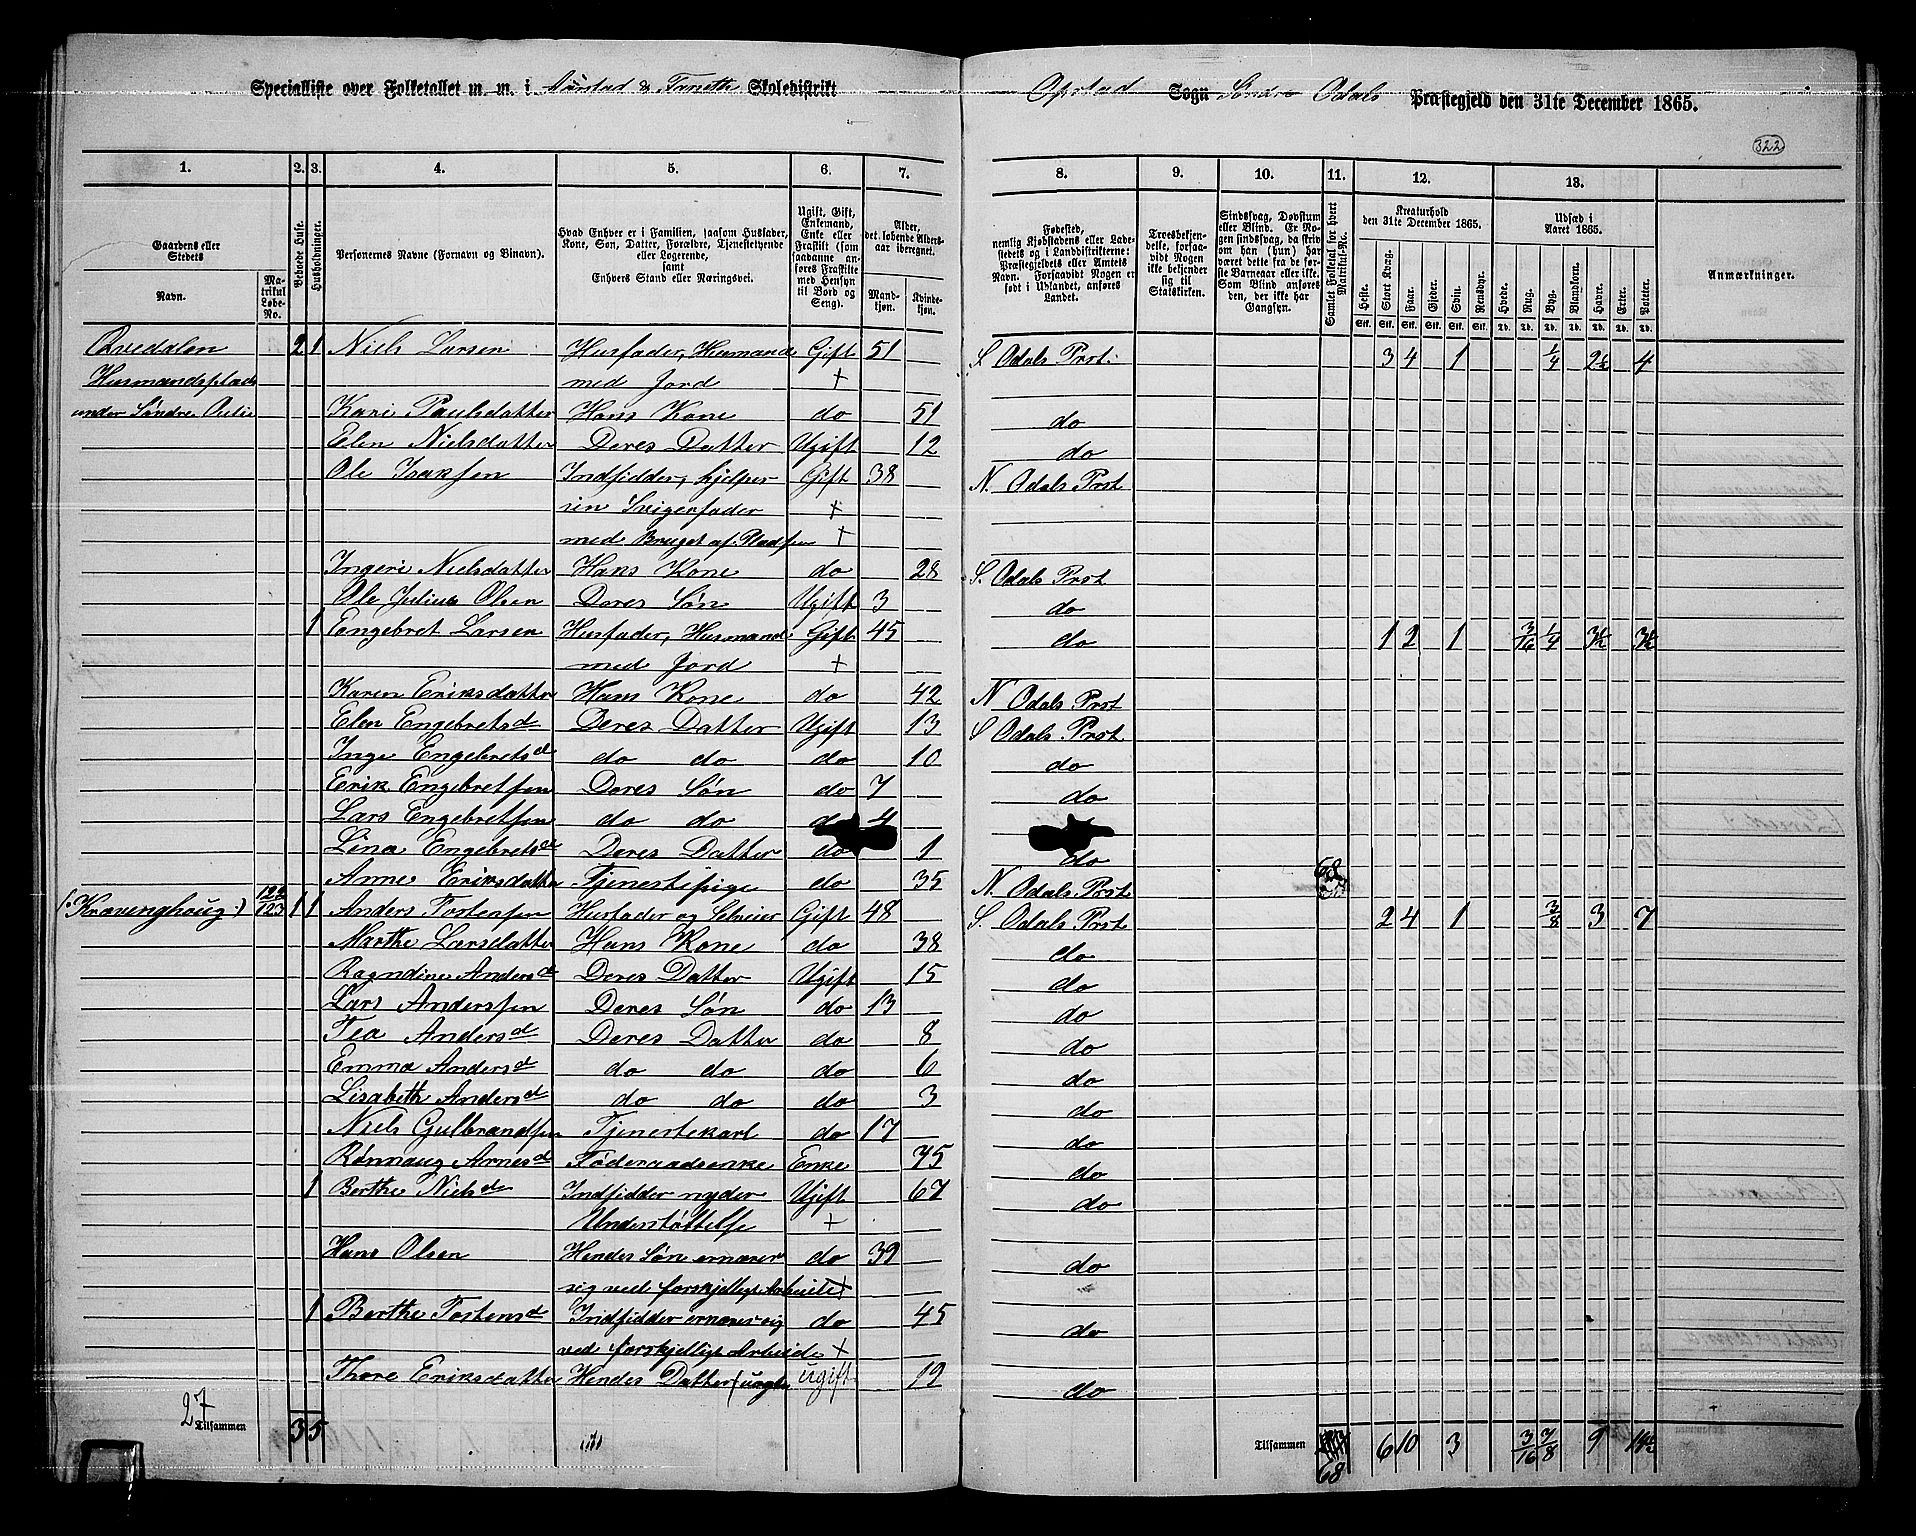 Specialliste over Folketallet m. m. i Aarstad & Skoledistrikt Opstad Sogn Søndre Odals Præstegjeld den 31te December 1865.
322
1. 2. 3. 4. 5. 6. 7. 8. 9. 10. 11. 12. 13.
Gaardens eller Stedets Navn.
Matrikul Løbe-No.
Beboede Huse.
Husholdninger.
Personernes Navne (Fornavn og Binavn).
Hvad Enhver er i Familien, saasom Husfader, Kone, Søn, Datter, Forældre, Tjenestetyende eller Logerende, samt Enhvers Stand eller Næringsvei.
Ugift, Gift, Enkemand, Enke eller Fraskilt (som saadanne anføres Fraskilte med Hensyn til Bord og Seng).
Alder, det løbende Alders-aar iberegnet.
Mandkjøn.
Kvindekjøn.
Fødested, nemlig Kjøbstadens eller Ladestedets og i Landdistrikterne: Præstegjeldets eller Amtets Navn. Forsaavidt Nogen er født i Udlandet, anføres Landet.
Troesbekjendelse, forsaavidt Nogen ikke bekjender sig til Statskirken.
Sindssvag, Døvstum eller Blind. Er Nogen sindssvag, da skriv om han (hun) har været dette fra de første Barneaar eller ikke. Som Blind anføres den, der ikke har Gangsyn.
Samlet Folketal for hvert Matrikul-No.
Kreaturhold den 31te December 1865.
Heste. Stort Kvæg. Faar. Gjeder. Sviin. Rensdyr.
Stk. Stk. Stk. Stk. Stk. Stk.
Udsæd i Aaret 1865.
Hvede. Rug. Byg. Blandkorn. Havre. Erter. Poteter.
Td. Td. Td. Td. Td. Td. Td.
Anmærkninger.
Qvedalen 2 1 Niels Larsen Husfader, Husmand Gift 51 S Odals Prst. 3 4 1 1/4 2½ 4
Husmandsplads med Jord +
under Søndre Kari Paulsdatter Hans Kone do 51 do
Elen Nielsdatter Deres Datter Ugift 12 do
Ole Isaksen Indsidder, hjelper Gift 38 N. Odals Prst
sin Svigerfader +
med Bruget af Pladsen +
Ingeri Nielsdatter Hans Kone do 28 S. Odals Prst
Ole Julius Olsen Deres Søn Ugift 3 do
1 Engebret Larsen Husfader, Husmand Gift 45 do 1 2 1 3/16 1/4 3½ 3½
med Jord +
Karen Eriksdatter Hans Kone do 42 N Odals Prst
Elen Engebretsd Deres Datter Ugift 13 S Odals Prst
Inge Engebretsd do do do 10 do
Erik Engebretsen Deres Søn do 7 do
Lars Engebretsen do do do 4
Lina Engebretsd Deres Datter do 1 do
Anne Eriksdatter Tjenestepige do 35 N. Odals Prst 68
(: Kravenghoug :) 122/123 1 1 Anders Tostensen Husfader og Selveier Gift 48 S. Odals Prst 2 4 1 3/8 3 7
Marthe Larsdatter Hans Kone do 38 do
Ragndine Andersd Deres Datter Ugift 15 do
Lars Anderssen Deres Søn do 13 do
Tea Andersd Deres Datter do 8 do
Emma Andersd do do do 6 do
Lisabeth Andersd do do do 3 do
Niels Gulbrandsen Tjenestekarl do 17 do
Rønnaug Arnesd Føderaadsenke Enke 75 do
1 Berthe Nielsd Indsidder nyder Ugift 67 do
Understøttelse +
Hans Olsen Hendes Søn ernærer do 39 do
sig ved forskjelligt Arbeide +
1 Berthe Tostensd Indsidder ernærer sig do 45 do
ved forskjelligt Arbeide +
Thore Eriksdatter Hendes Datter ugift 19 do
27
Tilsammen 3 5
Tilsammen 68 6 10 3 3/16 7/8 9 14½